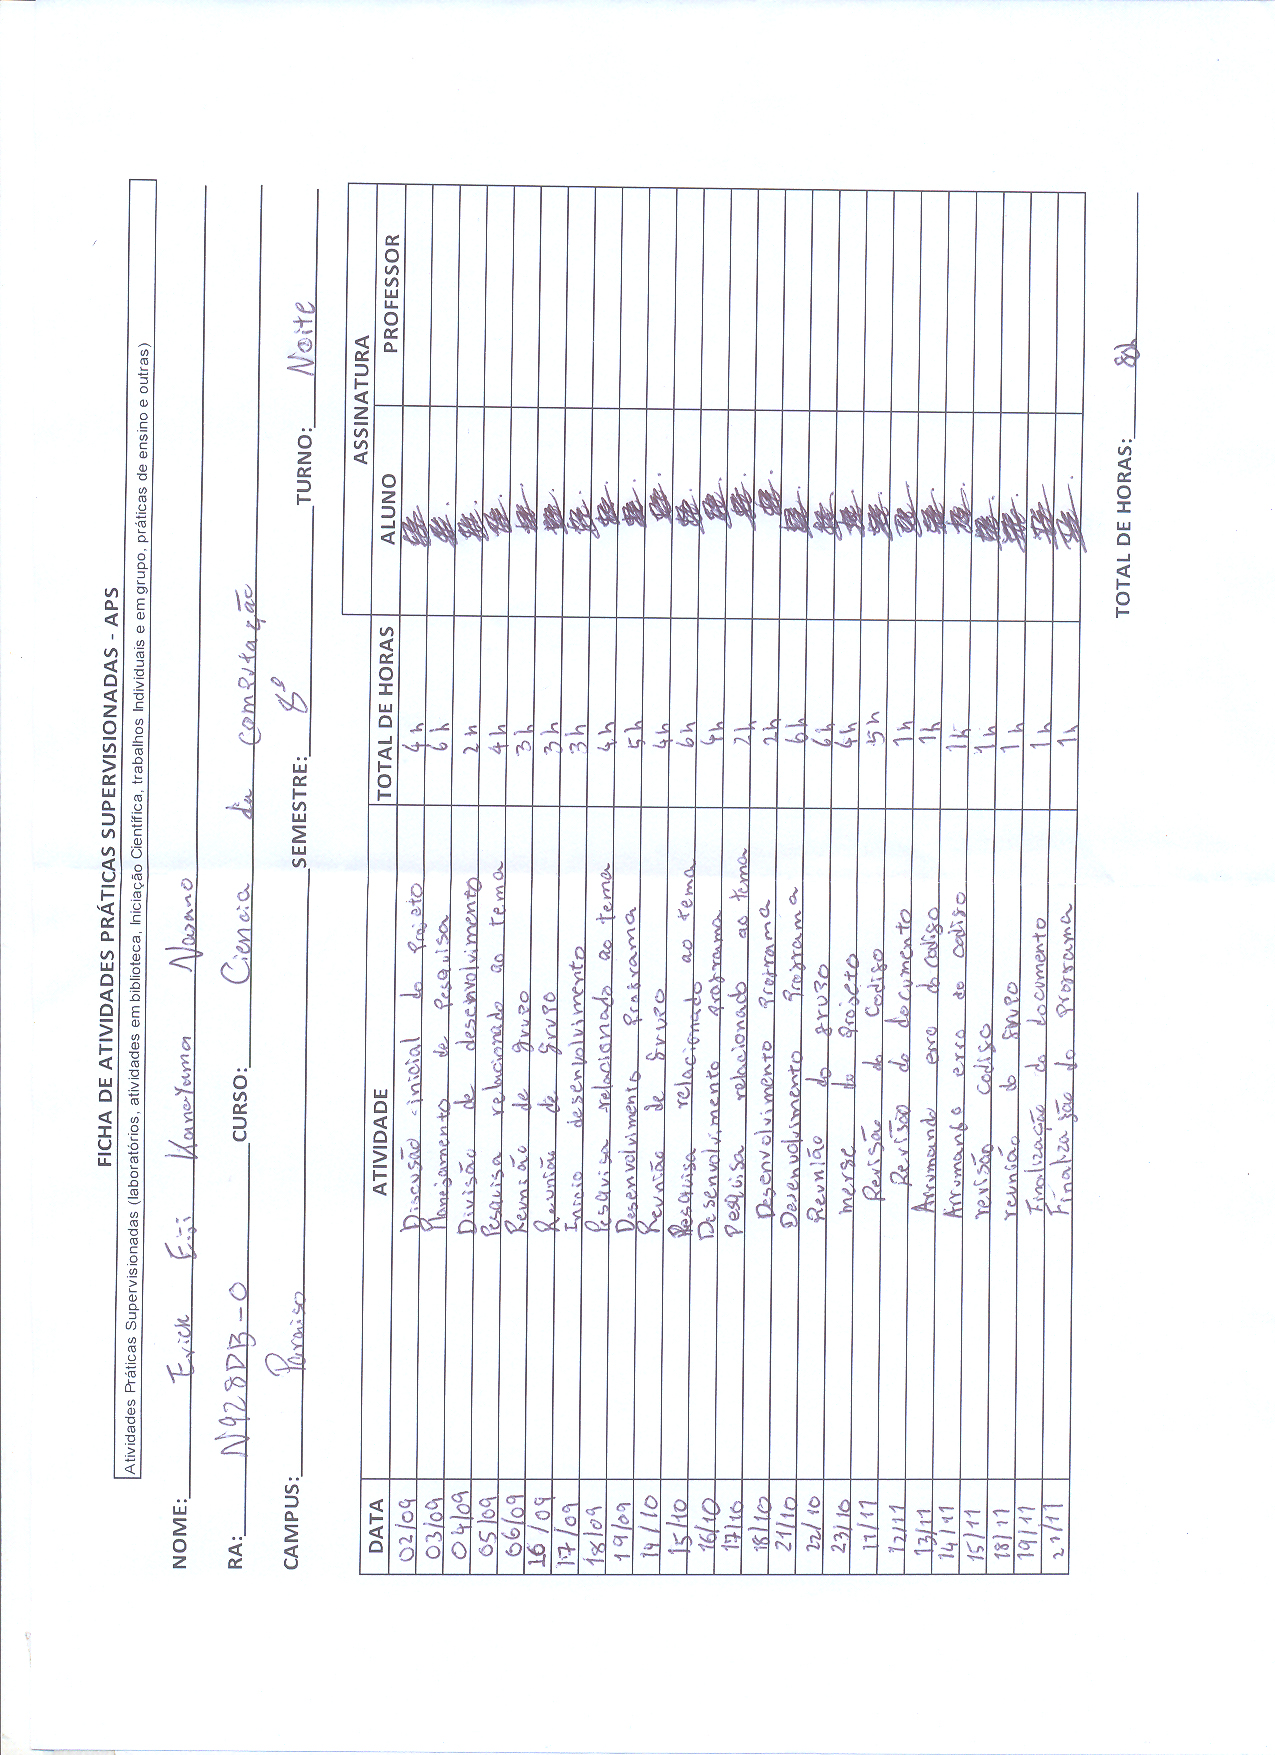 FICHA DE ATIVIDADES PRÁTICAS SUPERVISIONADAS - APS
Atividades Práticas Supervisionadas (laboratórios, atividades em biblioteca, Iniciação Científica, trabalhos Individuais e em grupo, práticas de ensino e outras)
NOME: Erick Eiji Kaneyama Nagano
RA: N928DB-0 CURSO: Ciencia da computação
CAMPUS: Paraiso SEMESTRE: 8º TURNO: Noite
ASSINATURA
DATA ATIVIDADE TOTAL DE HORAS ALUNO PROFESSOR
02/09 Discusão inicial do Projeto 4h
03/09 Planejamento de Pesquisa 6h
04/09 Divisão de desenvolvimento 2h
05/09 Pesquisa relacionado ao tema 4h
06/09 Reunião de grupo 3h
16/09 Reunião de Grupo 3h
17/09 Inicio desenvolvimento 3h
18/09 Pesquisa relacionado ao tema 4h
19/09 Desenvolvimento Programa 5h
14/10 Reunião de Grupo 4h
15/10 Pesquisa relacionado ao tema 6h
16/10 Desenvolvimento programa 4h
17/10 Pesquisa relacionado ao tema 2h
18/10 Desenvolvimento Programa 2h
21/10 Desenvolvimento Programa 6h
22/10 Reunião do grupo 6h
23/10 merge do projeto 4h
11/11 Revisão do Codigo 5h
12/11 Revisão do documento 1h
13/11 Arrumando erro do codigo 1h
14/11 Arrumando erro do codigo 1h
15/11 revisão codigo 1h
18/11 reunião do grupo 1h
19/11 Finalização do documento 1h
21/11 Finalização do programa 1h
TOTAL DE HORAS: 80h